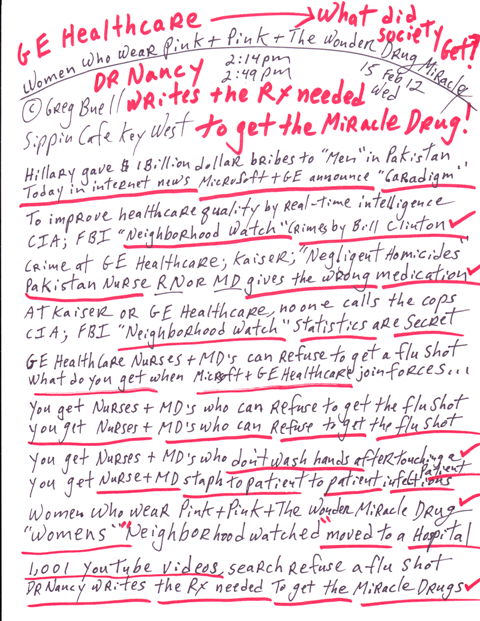 GE Healthcare → What did
society
Get?
Women Who Wear Pink + Pink + The Wonder Drug Miracle
DR Nancy 2:14pm
2:49pm 15 Feb 12
Wed
© Greg Buell Writes the Rx needed
Sippin Cafe Key West to get the Miracle Drug!
Hillary gave $ 1 Billion dollar bribes to "Men" in Pakistan
Today in internet news Microsoft + GE announce "Caradigm"
To improve healthcare quality by real-time intelligence
CIA; FBI "Neighborhood Watch" Crimes by Bill Clinton
Crime at GE Healthcare; Kaiser; "Negligent Homicides"
Pakistan Nurse RN or MD gives the wrong medication
At Kaiser or GE Healthcare, no one calls the cops
CIA; FBI "Neighborhood Watch" Statistics are Secret
GE Healthcare Nurses + MD's can refuse to get a flu shot
What do you get when Microsoft + GE Healthcare join forces...
You get Nurses + MD's who can refuse to get the flu shot
you get Nurses + MD's who can refuse to get the flu shot
You get Nurses + MD's who don't wash hands after touching a Patient
You get Nurse + MD staph to patient to patient infections
Women Who Wear Pink + Pink + The Wonder Miracle Drug
"Womens" "Neighborhood watched" moved to a Hospital
1,001 YouTube videos, search refuse a flu shot
DR Nancy writes the Rx needed To get the Miracle Drugs